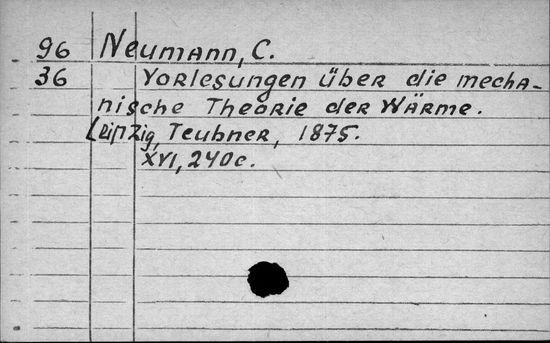 96 Neumann, C.
36 Vorlesungen über die mecha-
nische Theorie der Wärme.
Leipzig, Teubner, 1875.
XVI, 240 c.